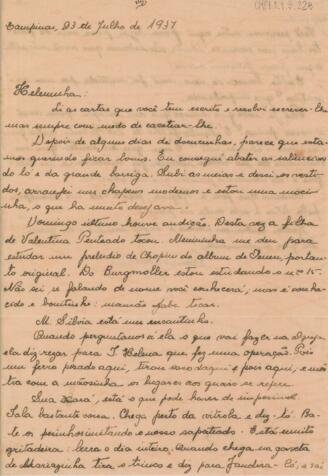 Campinas, 23 de Julho de 1937
Heleninha:
Li as cartas que você tem escrito e resolvi escrever-lhe
mas sempre com medo de cacetear-lhe.
Depois de alguns dias de doencinhas, parece que esta-
mos querendo ficar bons. Eu consegui abater as saliencias
do ló e da grande barriga. Subi as meias e desci os vesti-
dos, arranjei uns chapeus modernos e estou uma moci-
nha, o que ha muito desejava.
Domingo ultimo houve audição. Desta vez a filha
de Valentina Penteado tocou. Nenninha me deu para
estudar um preludio de Chopin do album de portan-
to original. De Burgmoller estou estudando o nº 15.
Não sei se falando de nome você conhecerá, mas é conhe-
cido e bonitinho: mamãe sabe tocar.
M. Silvia está um encantinho.
Quando perguntamos a ela o que vai fazer na Igreja
ela diz: reçar para T. Helena que fez uma operação. Pois
um ferro pesado aqui, tirou daqui e pois aqui, e mos-
tra com a mãosinha os lugares aos quais se refere.
Sua Xará, está o que pode haver de impossivel.
Fala bastante coisa. Chega perto da vitrola e diz- ló! Ba-
te os pésinhos imitando o nosso sapateado. Está muito
gritadeira: berra o dia inteiro. Quando chega na gaveta
de tira o trinco e diz para Jandira- Ló, e vai